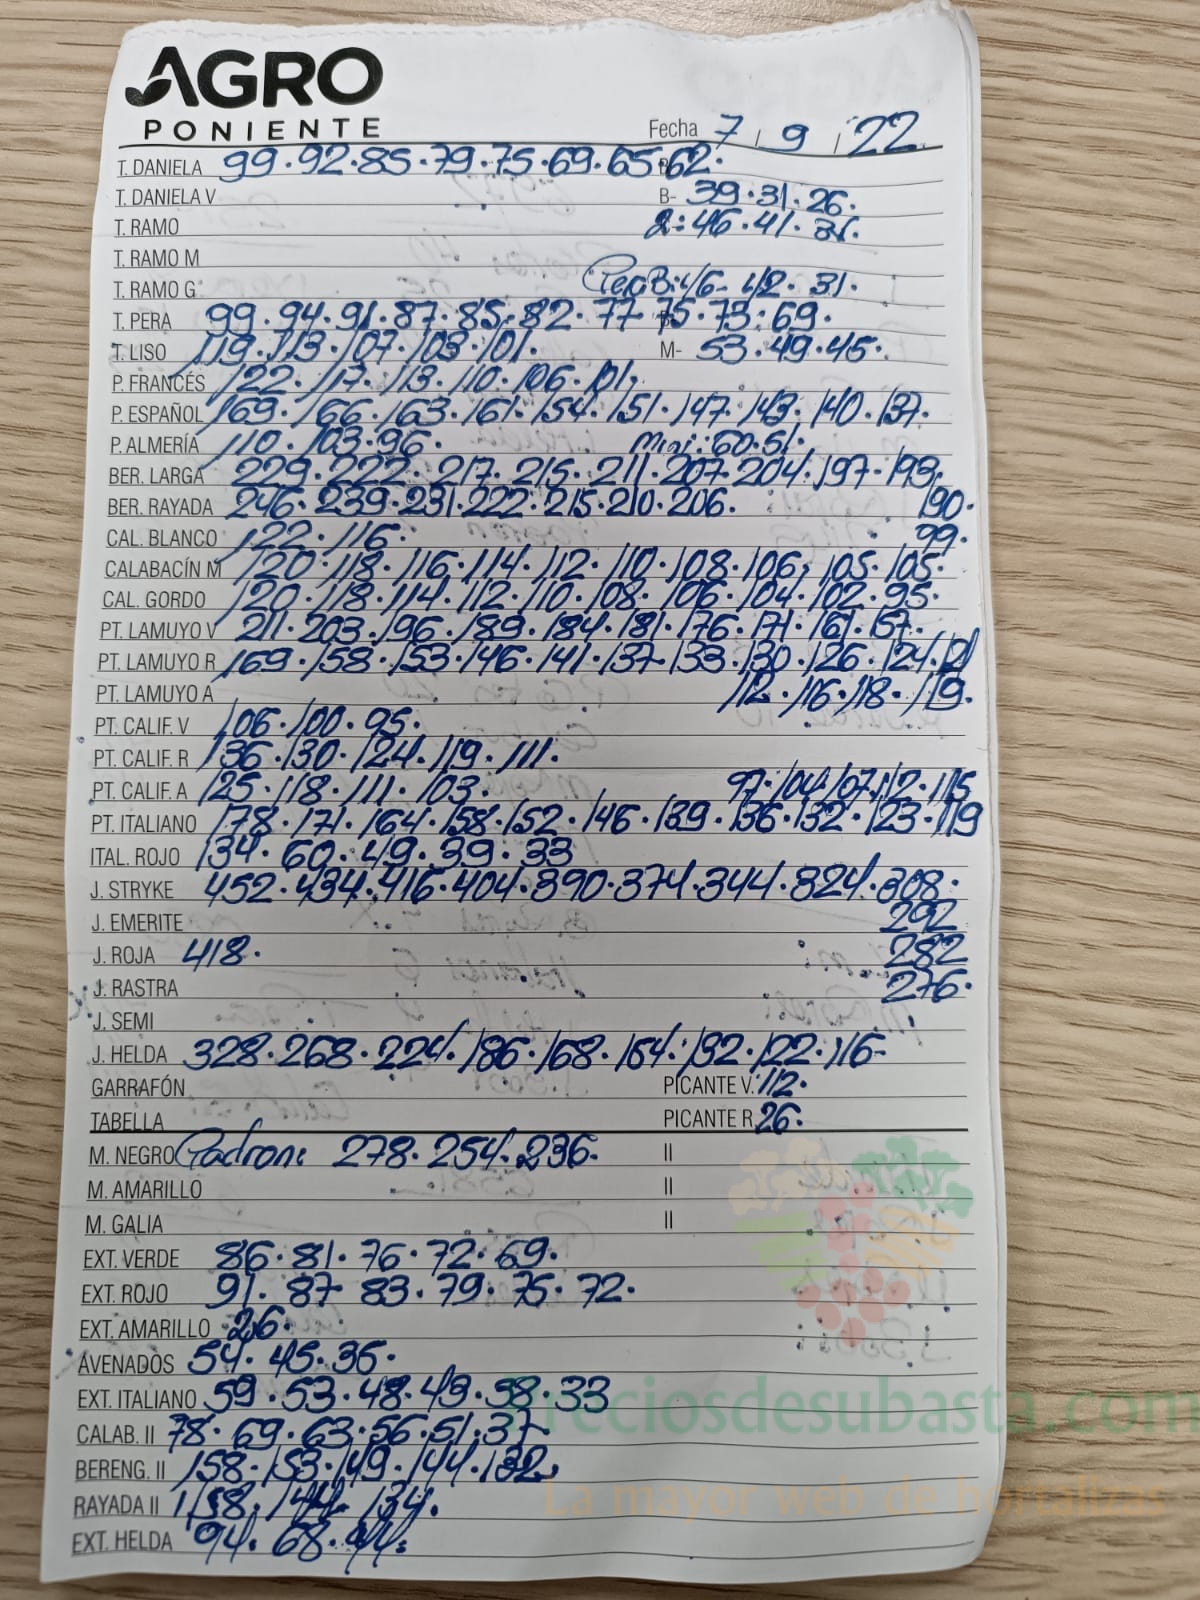 AGRO
PONIENTE
Fecha 7 / 9 / 22
T. DANIELA 99.92.85.79.75.69.65.62.
T. DANIELA V B- 39.31.26.
T. RAMO 2:46.41.31.
T. RAMO M
T. RAMO G Pera B: 46- 42. 31.
T. PERA 99.94.91.87.85.82.77 75.73.69.
T. LISO 119.113.107.103.101. M- 53.49.45.
P. FRANCÉS 122.117.113.110.106.101.
P. ESPAÑOL 169.166.163.161.154.151.147.143.140.137.
P. ALMERÍA 110.103.96. Mini: 60.51.
BER. LARGA 229.222.217.215.211.207.204.197.193.
BER. RAYADA 246.239.231.222.215.210.206. 190.
CAL. BLANCO 122.116. 99.
CALABACÍN M 120.118.116.114.112.110.108.106.105.105.
CAL. GORDO 120.118.114.112.110.108.106.104.102.95.
PT. LAMUYO V 211.203.196.189.184.181.176.171.161.157.
PT. LAMUYO R 169.158.153.146.141.137.133.130.126.124.121
PT. LAMUYO A 112.116.118.119.
PT. CALIF. V 106.100.95.
PT. CALIF. R 136.130.124.119.111.
PT. CALIF. A 125.118.111.103. 97.104.107.112.115
PT. ITALIANO 178.171.164.158.152.146.139.136.132.123.119
ITAL. ROJO 134.60.49.39.33
J. STRYKE 452.434.416.404.390.374.344.324.308.
J. EMERITE 292
J. ROJA 418. 282
J. RASTRA 276.
J. SEMI
J. HELDA 328.268.224.186.168.154.132.122.116-
GARRAFÓN PICANTE V. 112.
TABELLA PICANTE R 26.
M. NEGRO Padron: 278.254.236. II
M. AMARILLO II
M. GALIA II
EXT. VERDE 86.81.76.72.69.
EXT. ROJO 91.87 83.79.75.72.
EXT. AMARILLO 26.
AVENADOS 54.45.36.
EXT. ITALIANO 59.53.48.43.38.33
Preciosdesubasta.com
CALAB. II 78.69.63.56.51.37
BERENG. II 158.153.149.144.132
La mayor web de hortalizas
RAYADA II 158.144.134.
EXT. HELDA 94.68.44.